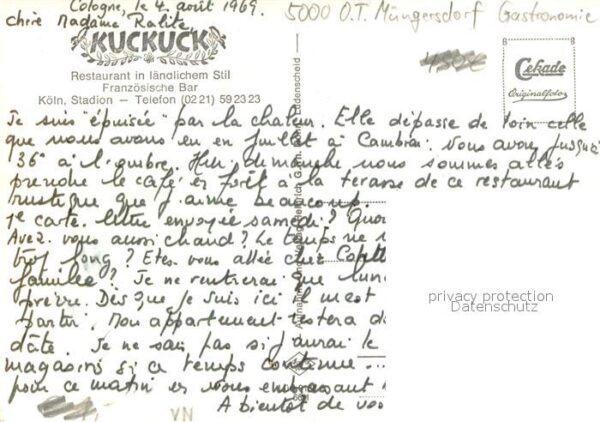 Cologne, le 4. août 1969.
5000 O.T. Müngersdorf Gastronomie
chère Madame Ralite,
KUCKUCK
Restaurant in ländlichem Stil
Französische Bar
Köln, Stadion — Telefon (02 21) 59 23 23
Cekade
Originalfoto
Je suis "épuisée" par la chaleur. Elle dépasse de loin celle
que nous avons eu en Juillet à Cambrai. Vous avons jusqu'à
36° à l'ombre. Hier, dimanche nous sommes allés
prendre le café en forêt à la terasse de ce restaurant
rustique que j'aime beaucoup.
1e carte. lettre envoyée samedi?
Avez-vous aussi chaud? Le temps ne
trop long? Etes-vous allée chez
famille? Je ne rentrerai que
Dès que je suis ici il m'est
partir. Mon appartement restera
date. Je ne sais pas si j'aurai le
magasins si ce temps continue...
pour ce matin en vous embrassant
A bientôt de vos
privacy protection
Datenschutz
VN